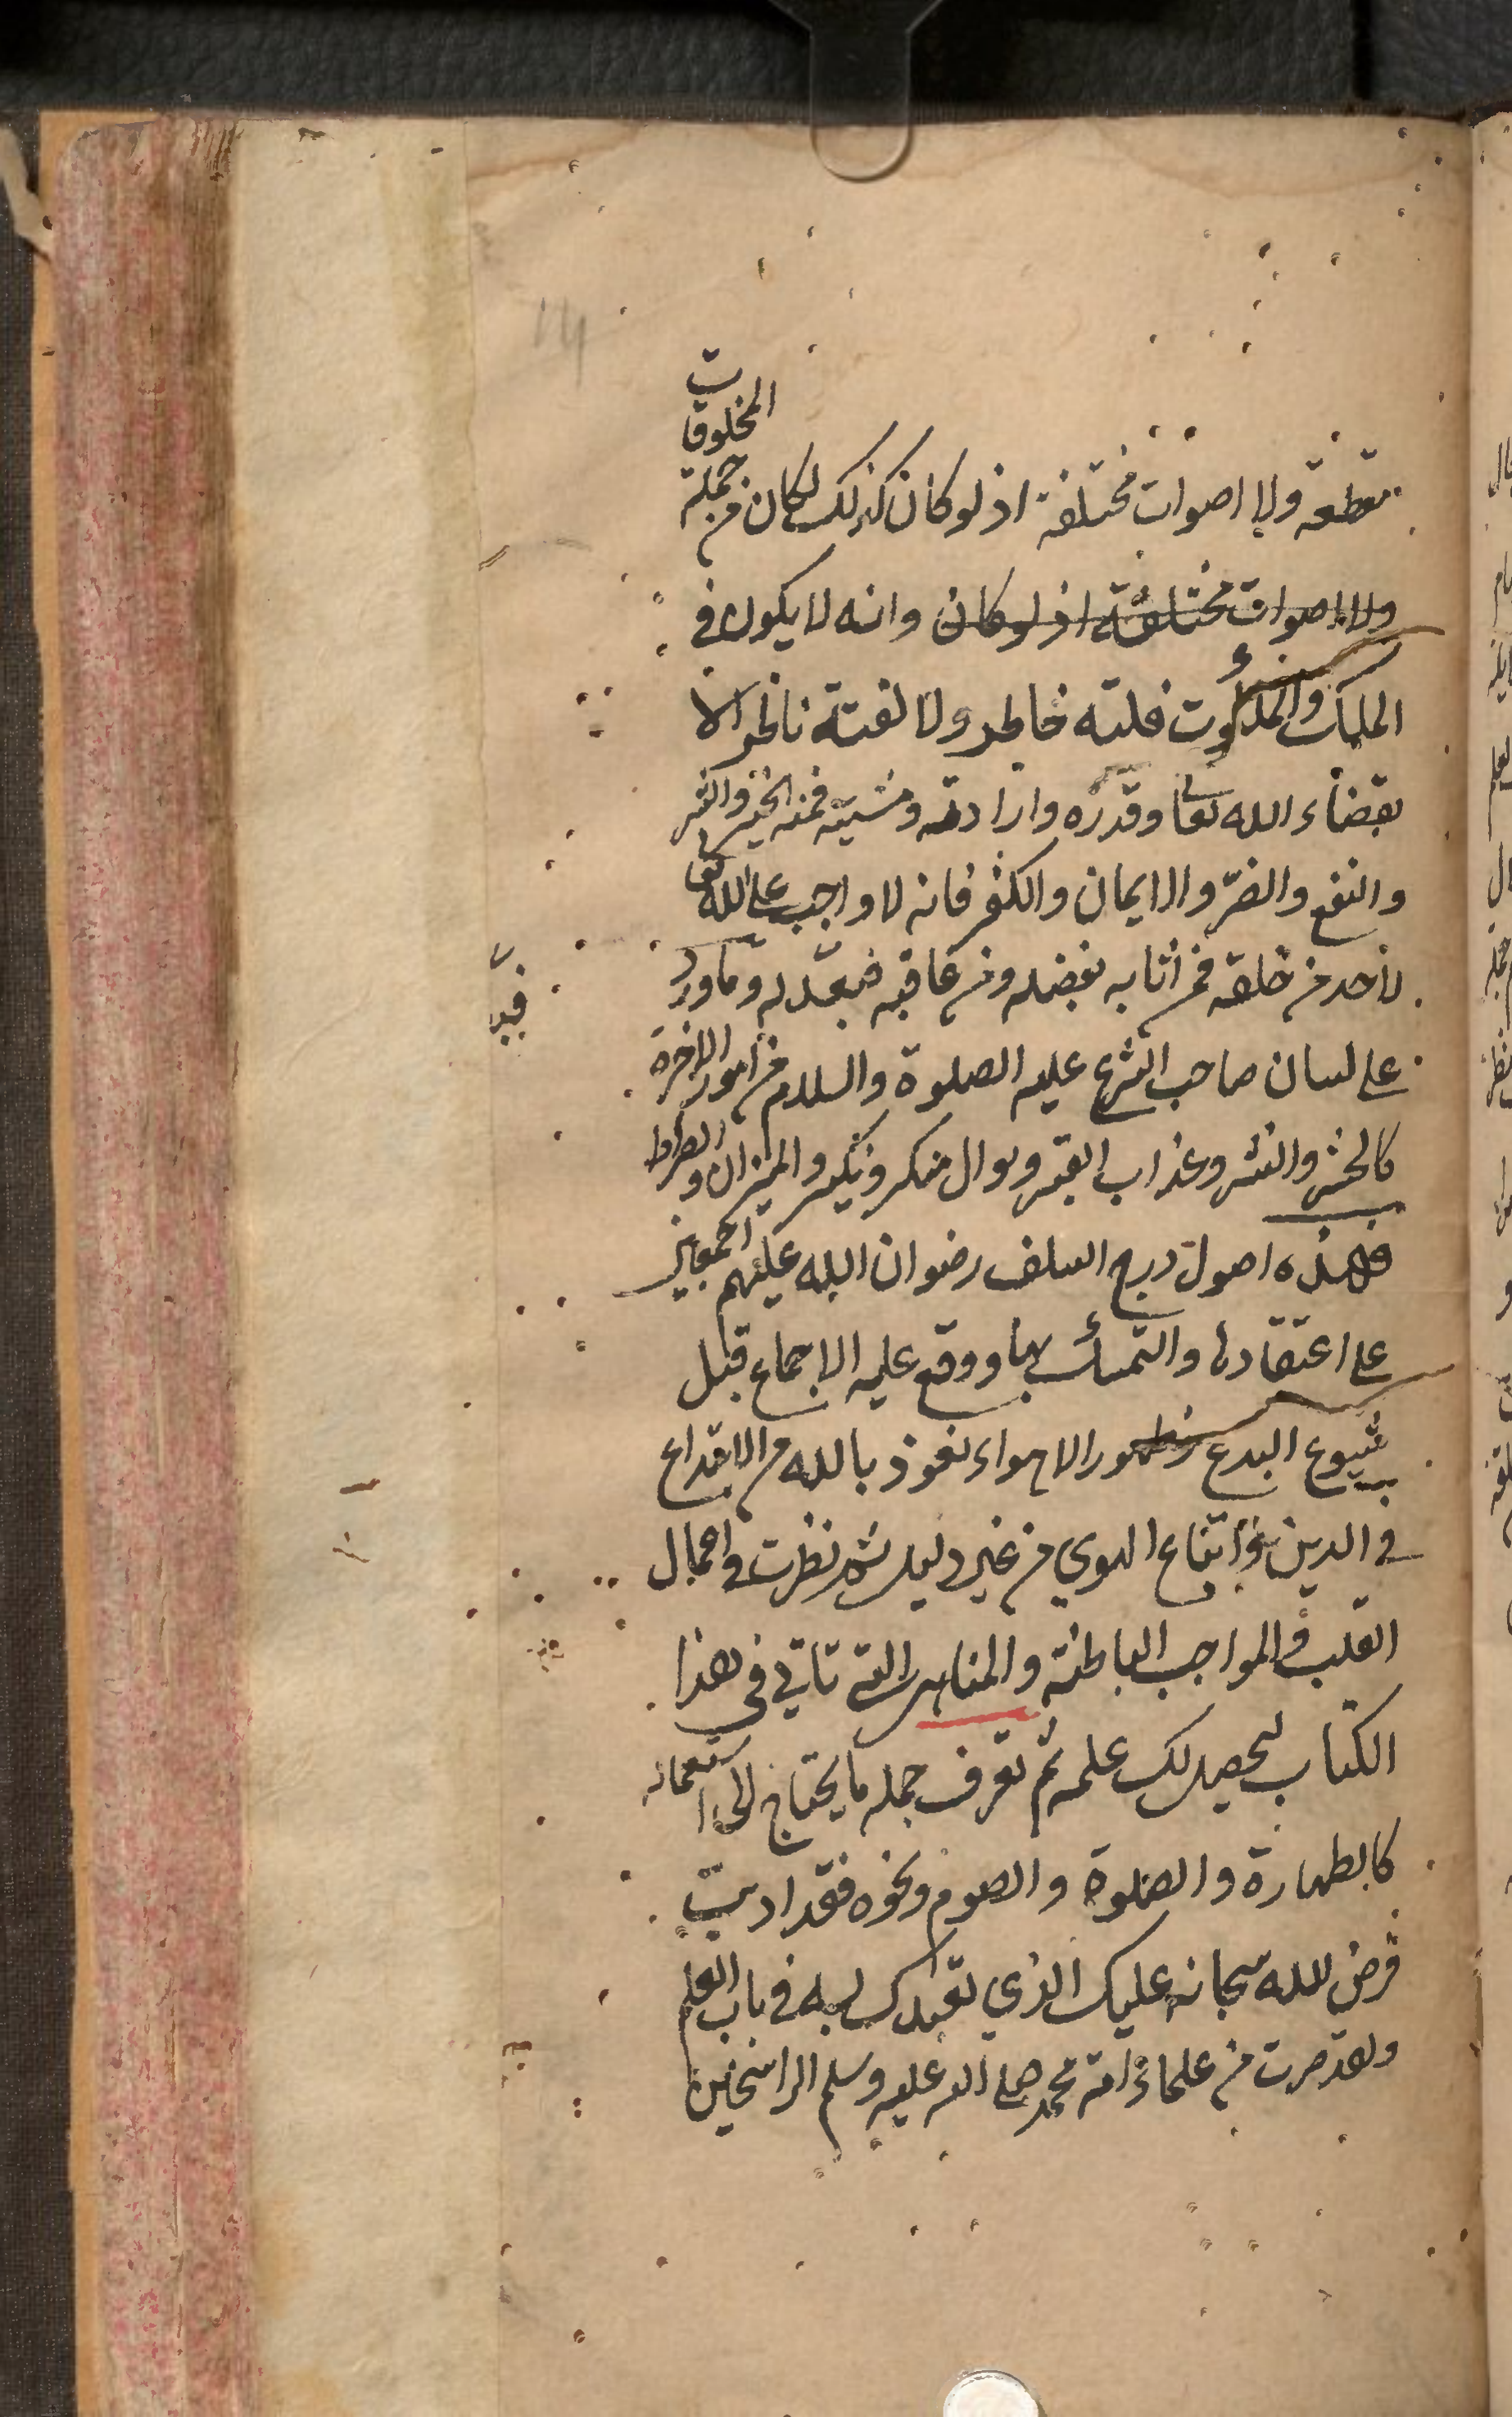 متقطعة ولا اصوات مختلفة اذ لو كان كذلك لكان من جملة المخلوقات
ولا اصوات مختلفة اذ لو كان وانه لا يكون في
الملك والملكوت فلتة خاطر ولا لفتة ناظر الا
بقضاء الله تعا وقدره وارادته ومشيته فمنه الخير والشر
والنفع والضر والايمان والكفر فانه لا واجب على الله تعا
لاحد من خلقه فمن أثابه بفضله ومن عاقبه فبعدله وما ورد
على لسان صاحب الشرع عليه الصلوة والسلام من امور الاخرة
كالحشر والنشر وعذاب القبر وسوال منكر ونكير والميزان والصراط
فهذه اصول درج السلف رضوان الله عليهم اجمعين
على اعتقادها والتمسك بها ووقع عليه الاجماع قبل
شيوع البدع وظهور الاهواء نعوذ بالله من الابتداع
في الدين واتباع الهوي من غير دليل ثم نظرت في اعمال
القلب والمواجب الباطنة والمناهي التي تاتي في هذا
الكتاب ليحصل لك علمه ثم تعرف جملة ما يحتاج الى استعماله
كالطهارة والصلوة والصوم ونحوه فقد اديت
فرض الله سبحانه عليك الذي تعبدك به في باب العلم
ولقد صرت من علماء امة محمد صلى الله عليه وسلم الراسخين